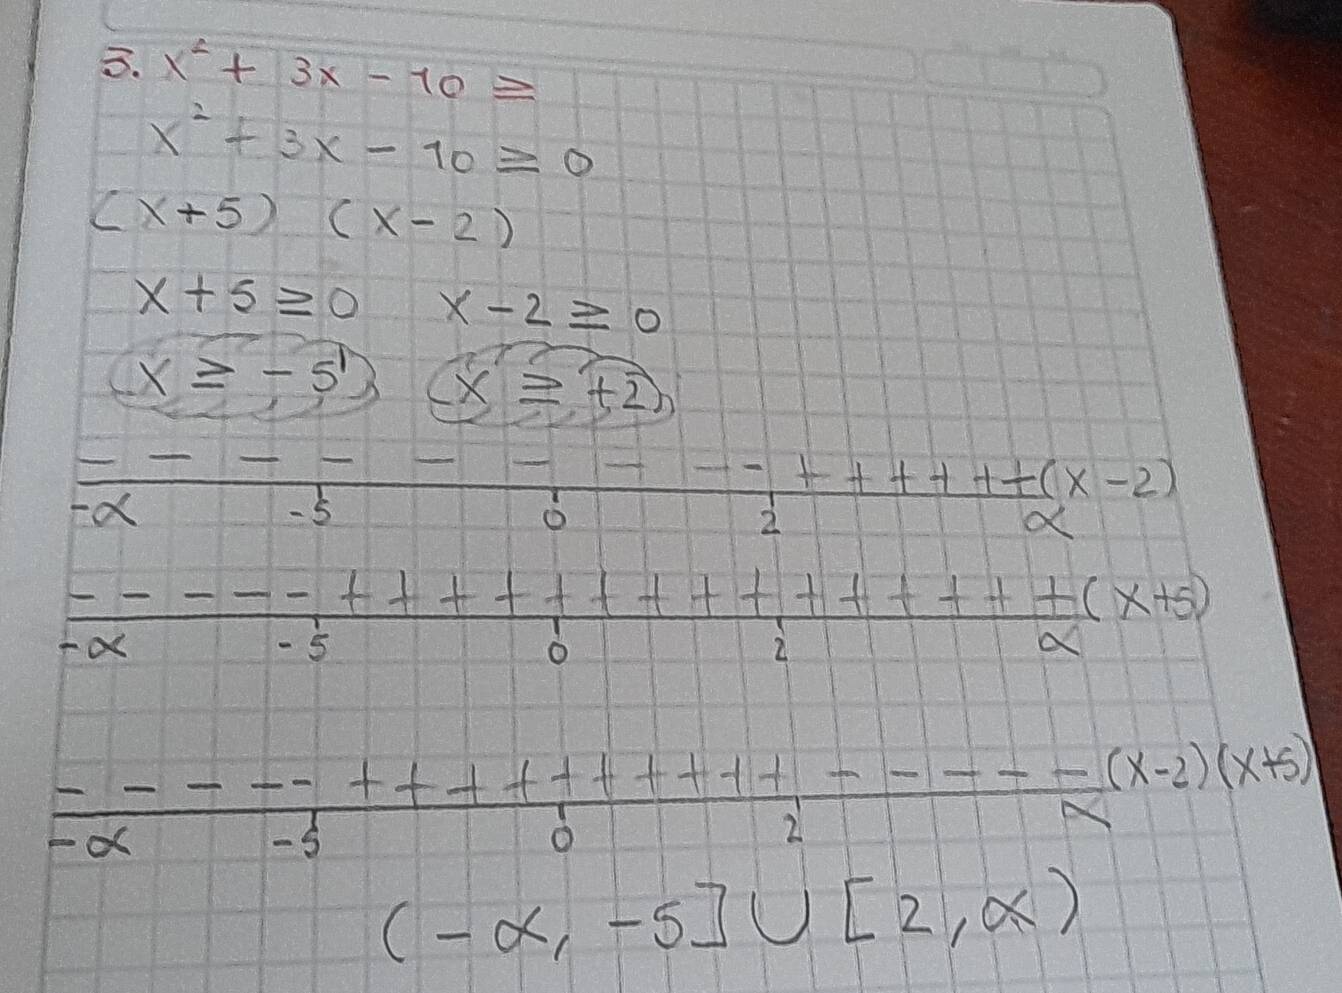 3. x² + 3x - 10 ≥
x² + 3x - 10 ≥ 0
(x+5) (x-2)
x+5 ≥ 0 x-2 ≥ 0
x ≥ -5 x ≥ +2
- - - - - - - - - + + + + + + (x-2)
-α -5 0 2 α
- - - - - + + + + + + + + + + + + + + + (x+5)
-α -5 0 2 α
- - - - - - + + + + + + + + + + - - - - - (x-2)(x+5)
-α -5 0 2 α
(-α, -5] ∪ [2, α)